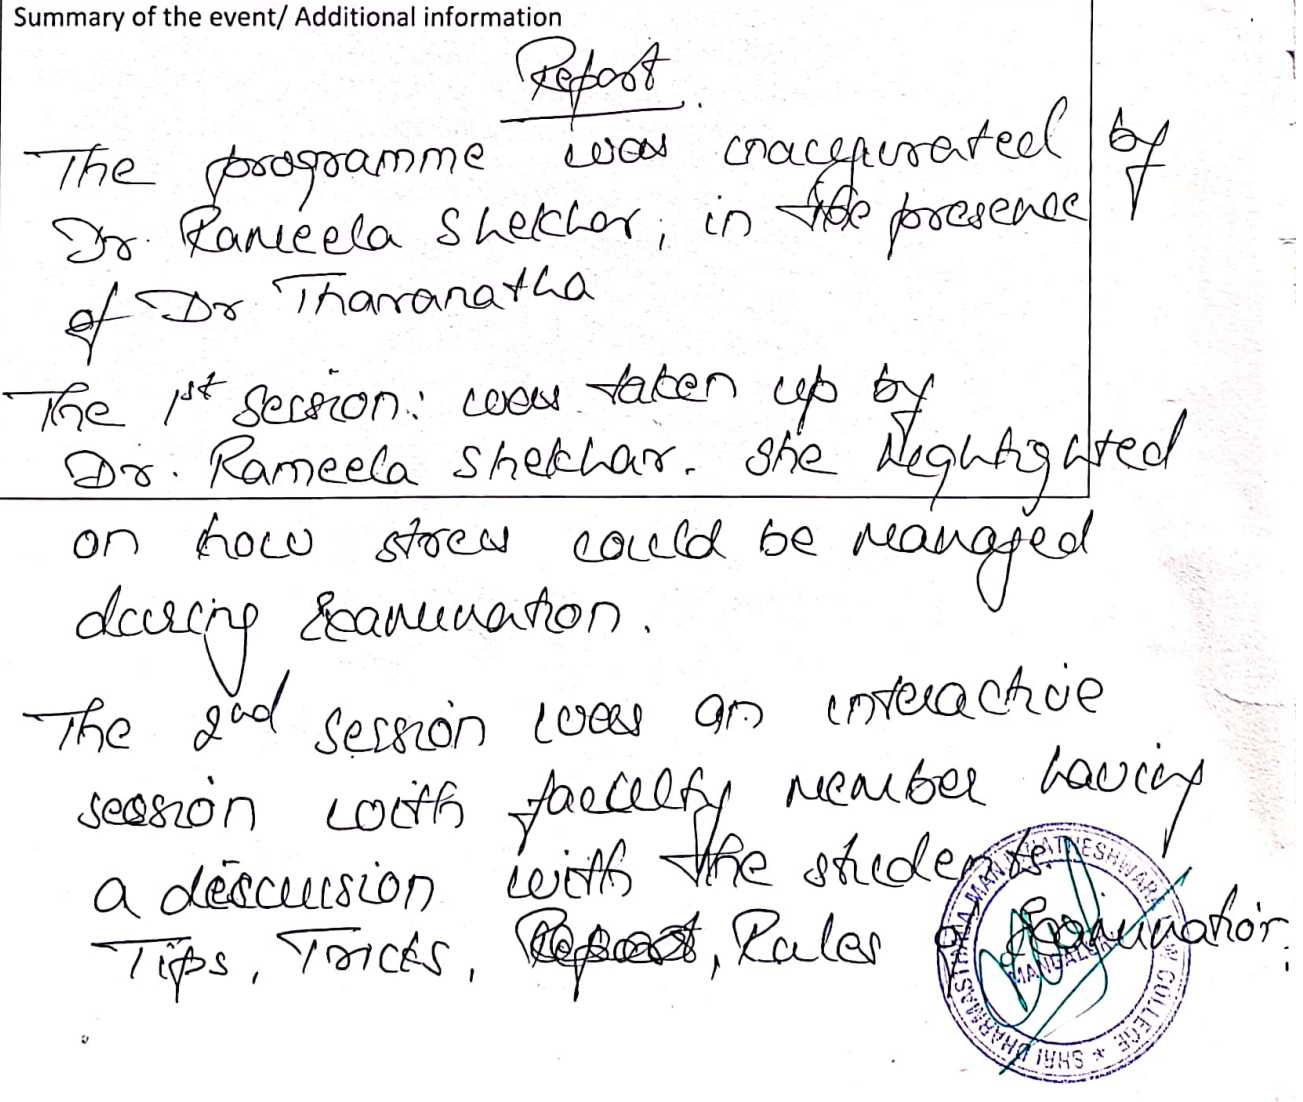 Summary of the event/ Additional information
Report.
The programme was inaugurated by
Dr. Rameela Shekhar, in the presence
of Dr Tharanatha
The 1st Session: was taken up by
Dr. Rameela Shekhar. She highlighted
on how stress could be managed
during Examination.
The 2nd session was an interactive
session with faculty member having
a discussion with the students
Tips, Tricks, , Rules of Examination.
SHRI DHARMASTHALA MANJUNATHESHWARA LAW COLLEGE *
MANGALORE